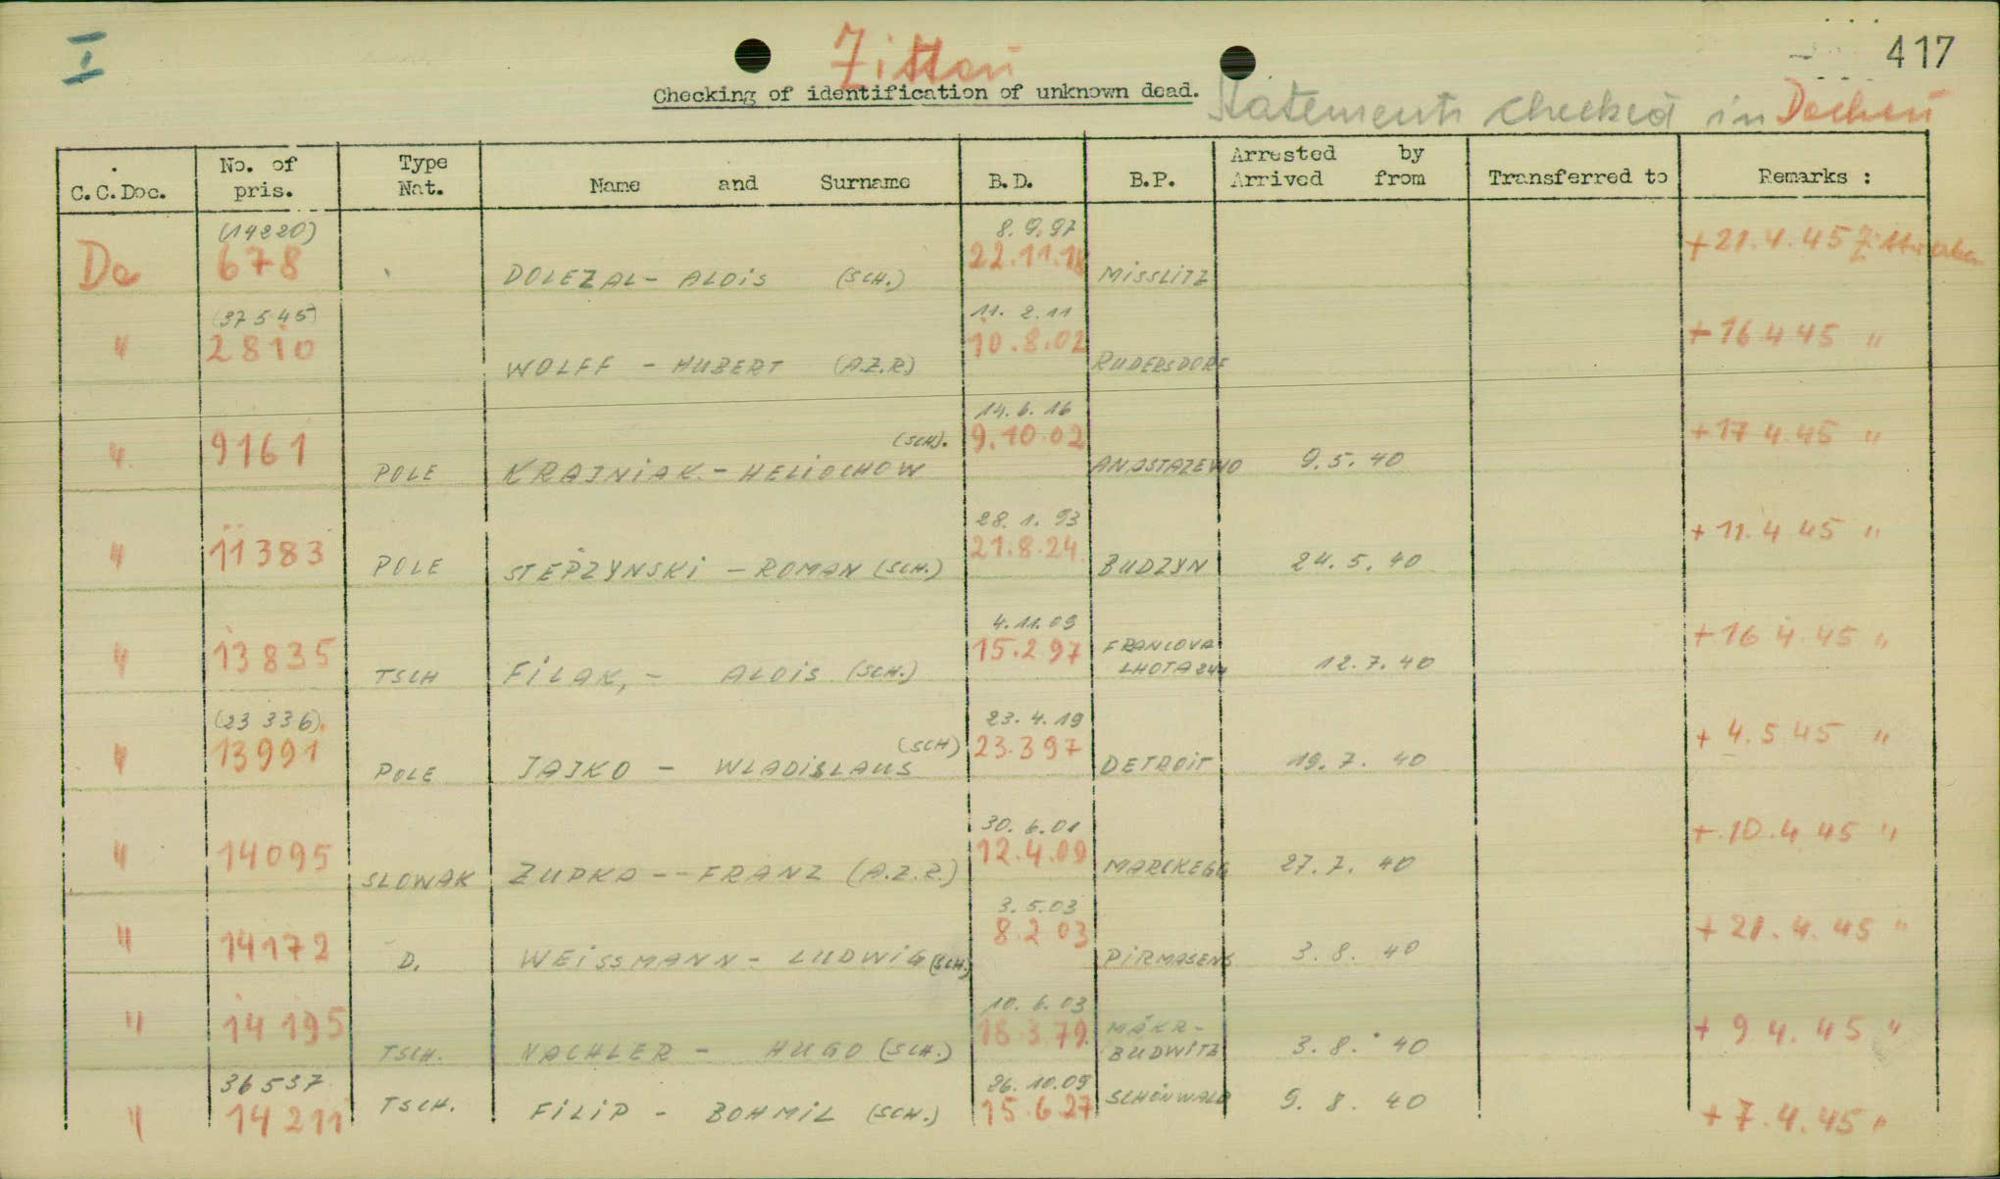 I
Zittau
417
Checking of identification of unknown dead.
Statements checked in Dachau
C.C.Doc. No. of pris. Type Nat. Name and Surname B.D. B.P. Arrested by Arrived from Transferred to Remarks :
(14220) 8.9.97
Da 678 DOLEZAL - ALOIS (SCH.) 22.11.18 MISSLITZ +21.4.45
(37545) 11.2.11
" 2810 WOLFF - HUBERT (A.Z.R) 10.8.02 RUDERSDORF +16 4 45 "
14.6.16
" 9161 POLE KRAJNIAK - HELIOCHOW (SCH). 9.10.02 ANASTAZEWO 9.5.40 +17 4.45 "
28.1.93
" 11383 POLE STEPZYNSKI - ROMAN (SCH.) 21.8.24 BUDZYN 24.5.40 +11.4 45 "
4.11.09
" 13835 TSCH FILAK, - ALOIS (SCH.) 15.2.97 FRANCOVA LHOTA 12.7.40 +16 4.45 "
(23 336). 23.4.19
" 13991 POLE JAJKO - WLADISLAUS (SCH) 23.3 97 DETROIT 19.7.40 + 4.5 45 "
30.6.01
" 14095 SLOWAK ZUPKO -- FRANZ (A.Z.R.) 12.4.09 MARCKEGG 27.7.40 +.10.4 45 "
3.5.03
" 14172 D. WEISSMANN - LUDWIG (SCH.) 8.2 03 PIRMASENS 3.8.40 + 21.4.45 "
10.6.03
" 14195 TSCH. WACHLER - HUGO (SCH.) 18 3 79. MÄKR-BUDWITZ 3.8.40 + 9 4.45 "
36537 26.10.09
" 14211 TSCH. FILIP - BOHMIL (SCH.) 15.6 27 SCHÖNWALD 9.8.40 + 7.4.45 "